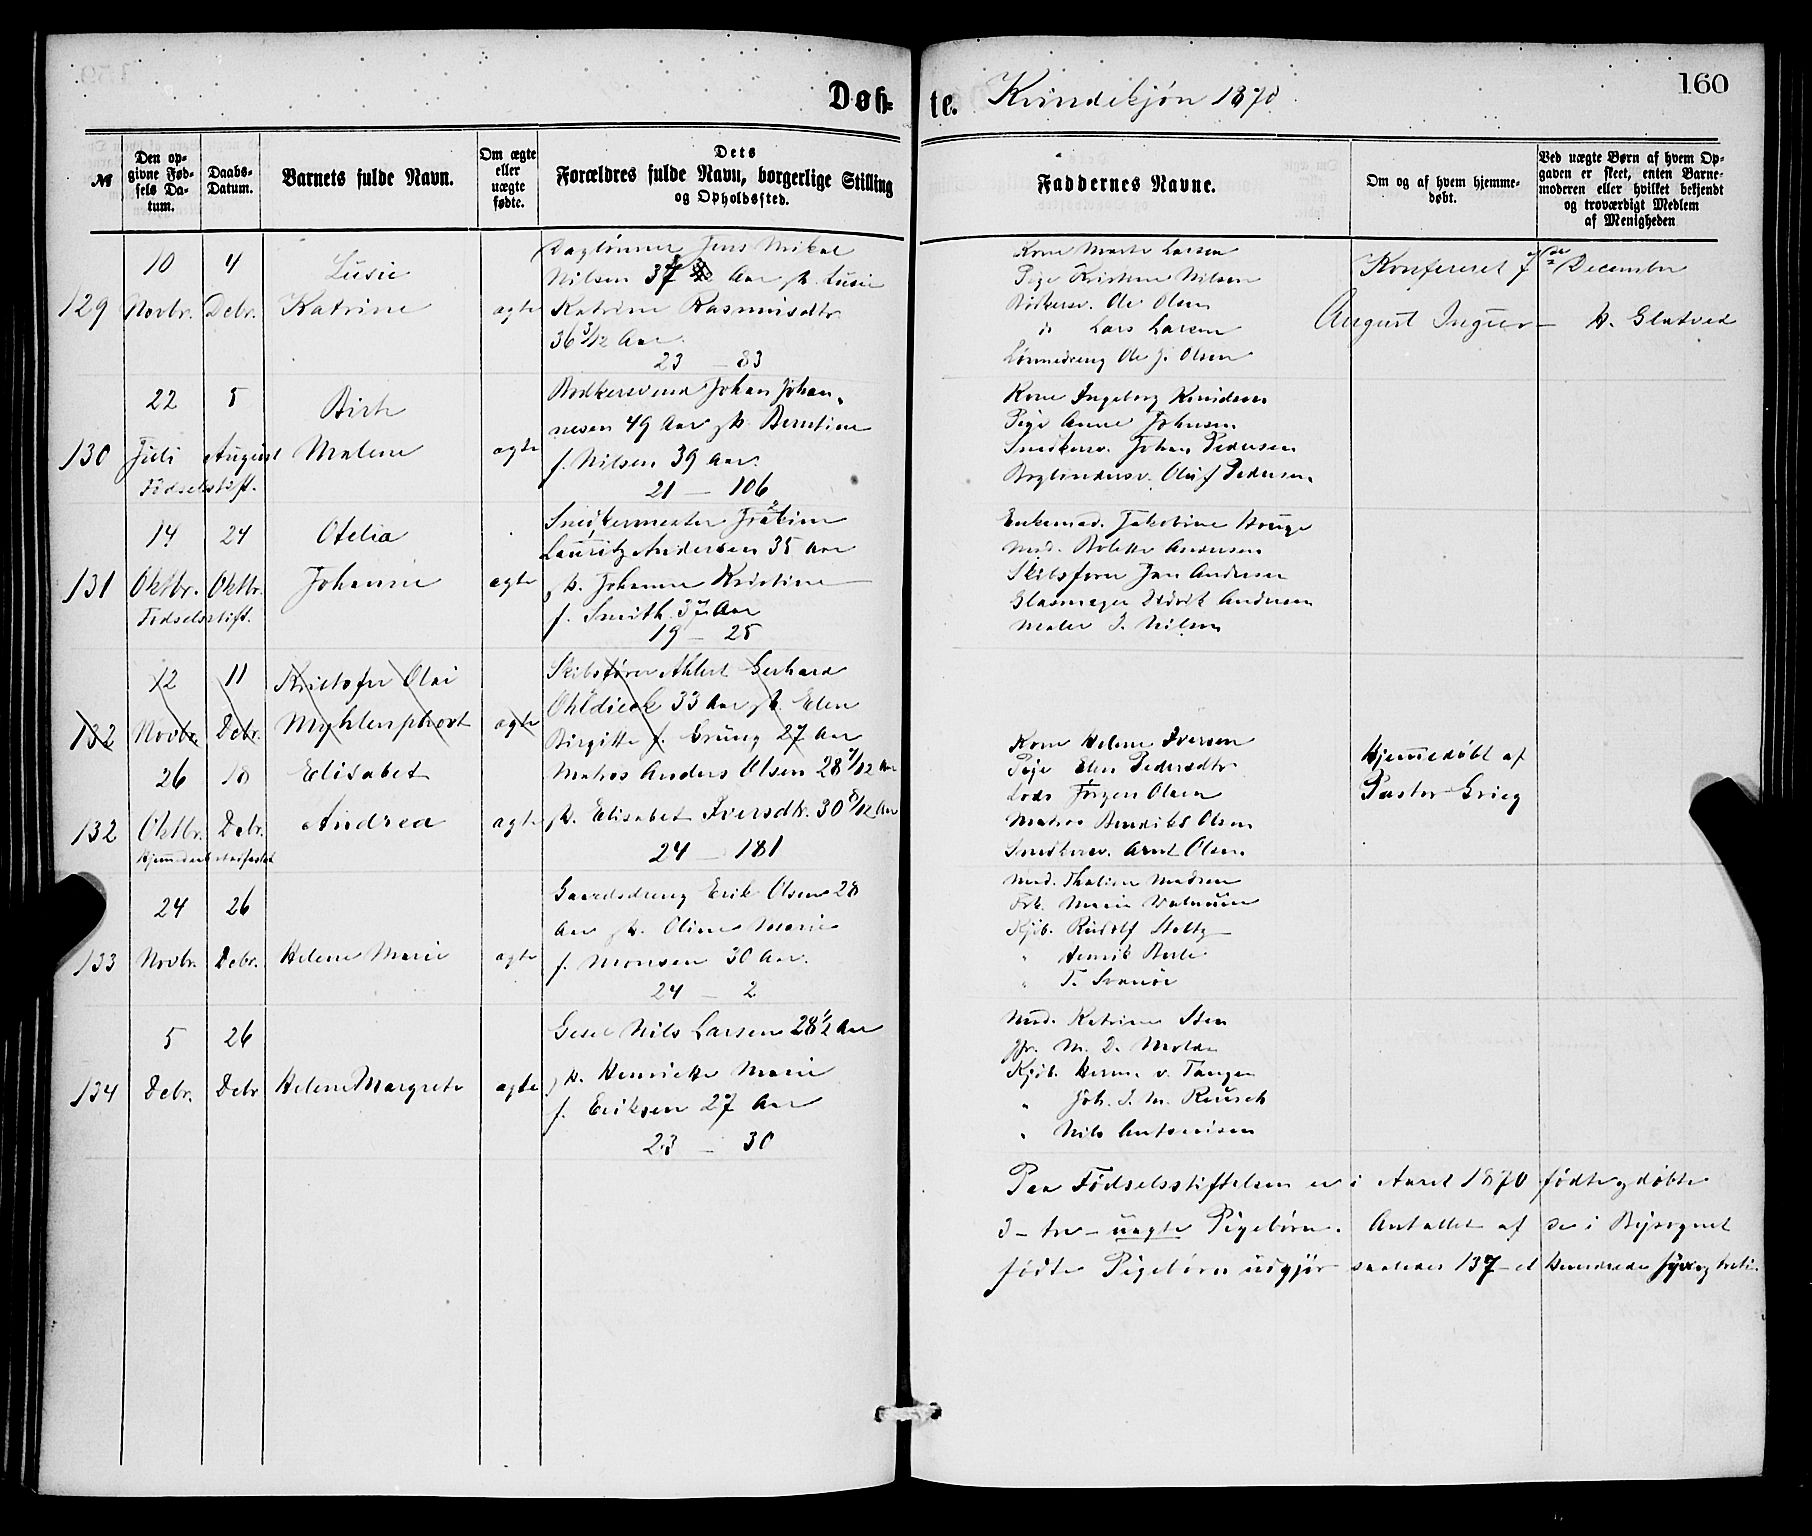 Døb-
te. Kvindekjøn 1870
160
№
Den op-
givne Fød-
sels Da-
tum.
Daabs-
Datum.
Barnets fulde Navn.
Om ægte
eller
uægte
fødte.
Dets
Forældres fulde Navn, borgerlige Stilling
og Opholdssted.
Faddernes Navne.
Om og af hvem hjemme-
døbt.
Ved uægte Børn af hvem Op-
gaven er skeet, enten Barne-
moderen eller hvilket bekjendt
og troværdigt Medlem
af Menigheden
129
10
Novbr.
4
Debr.
Lusie
Katrine
ægte
Daglønner Jens Mikal
Nilsen 37 Aar , H. Lusie
Katrine Rasmusdtr
36 3/12 Aar.
23 – 83
Kone Marte Larsen
Pige Kristine Nilsen
Bødkersv. Ole Olsen
" Lars Larsen
Ole J. Olsen
Konfereret December
August H. Glatved
130
22
Juli
Fødselsstift.
5
August
Birte
Malene
ægte
Bødkersvend Johan Johan-
nesen 49 Aar , H. Berntine
f. Nilsen 39 Aar.
21 – 106
Kone Ingeborg Knudsen
Pige Anne Johnsen
Snedkersv. Johan Pedersen
Oluf Pedersen
131
14
Oktbr.
Fødselsstift.
24
Oktbr.
Otelia
Johanne
ægte
Snedkermester
Lauritz Andersen 35 Aar
, H. Johanne Kristine
f. Smith 37 Aar
19 – 25
Enkemad. Jakobine Houge
Mad. Bolette Andersen
Skibsfører Jan Andersen
Glasmager Andersen
Maler J. Nilsen
132
12
Novbr.
11
Debr.
Kristofer Olai
Myhlenphort
ægte
Skibsfører Ahlert Gerhard
Ohldieck 33 Aar , H. Elen
Birgitte f. Grung 27 Aar
132
26
Oktbr.
18
Debr.
Elisabet
Andrea
ægte
Matros Anders Olsen 28 7/12 Aar
, H. Elisabet Iversdtr. 30 8/12 Aar
24 – 181
Kone Helene Iversen
Pige Elen Pedersdtr
Lods Jørgen Olsen
Matros Bendiks Olsen
Snedkersv. Arnt Olsen
Hjemmedøbt af
Pastor Grieg
133
24
Novbr.
26
Debr.
Helene Marie
ægte
Gaardsdreng Erik Olsen 28
Aar , H. Oline Marie
f. Monsen 30 Aar.
24 – 2
Mad. Thaline Madsen
Frk. Marie
Kjøb. Rudolf Stoltz
" Henrik
" T. Svanøe
134
5
Debr.
26
Debr
Helene Margrete
ægte
Gesel Nils Larsen 28½ Aar
, H. Henriette Marie
f. Eriksen 27 Aar
23 – 30
Mad. Katrine Sten
Jfr. M. D. Molde
Kjøb. Herm. v. Tangen
" Joh. J. M. Reusch
" Nils Antonisen
Paa Fødselsstiftelsen er i Aaret 1870 født og døbt
3 – tre – uægte Pigebørn. Antallet af de i Bysognet
fødte Pigebørn udgjør saaledes 137 – et Hundrede syv og treti.